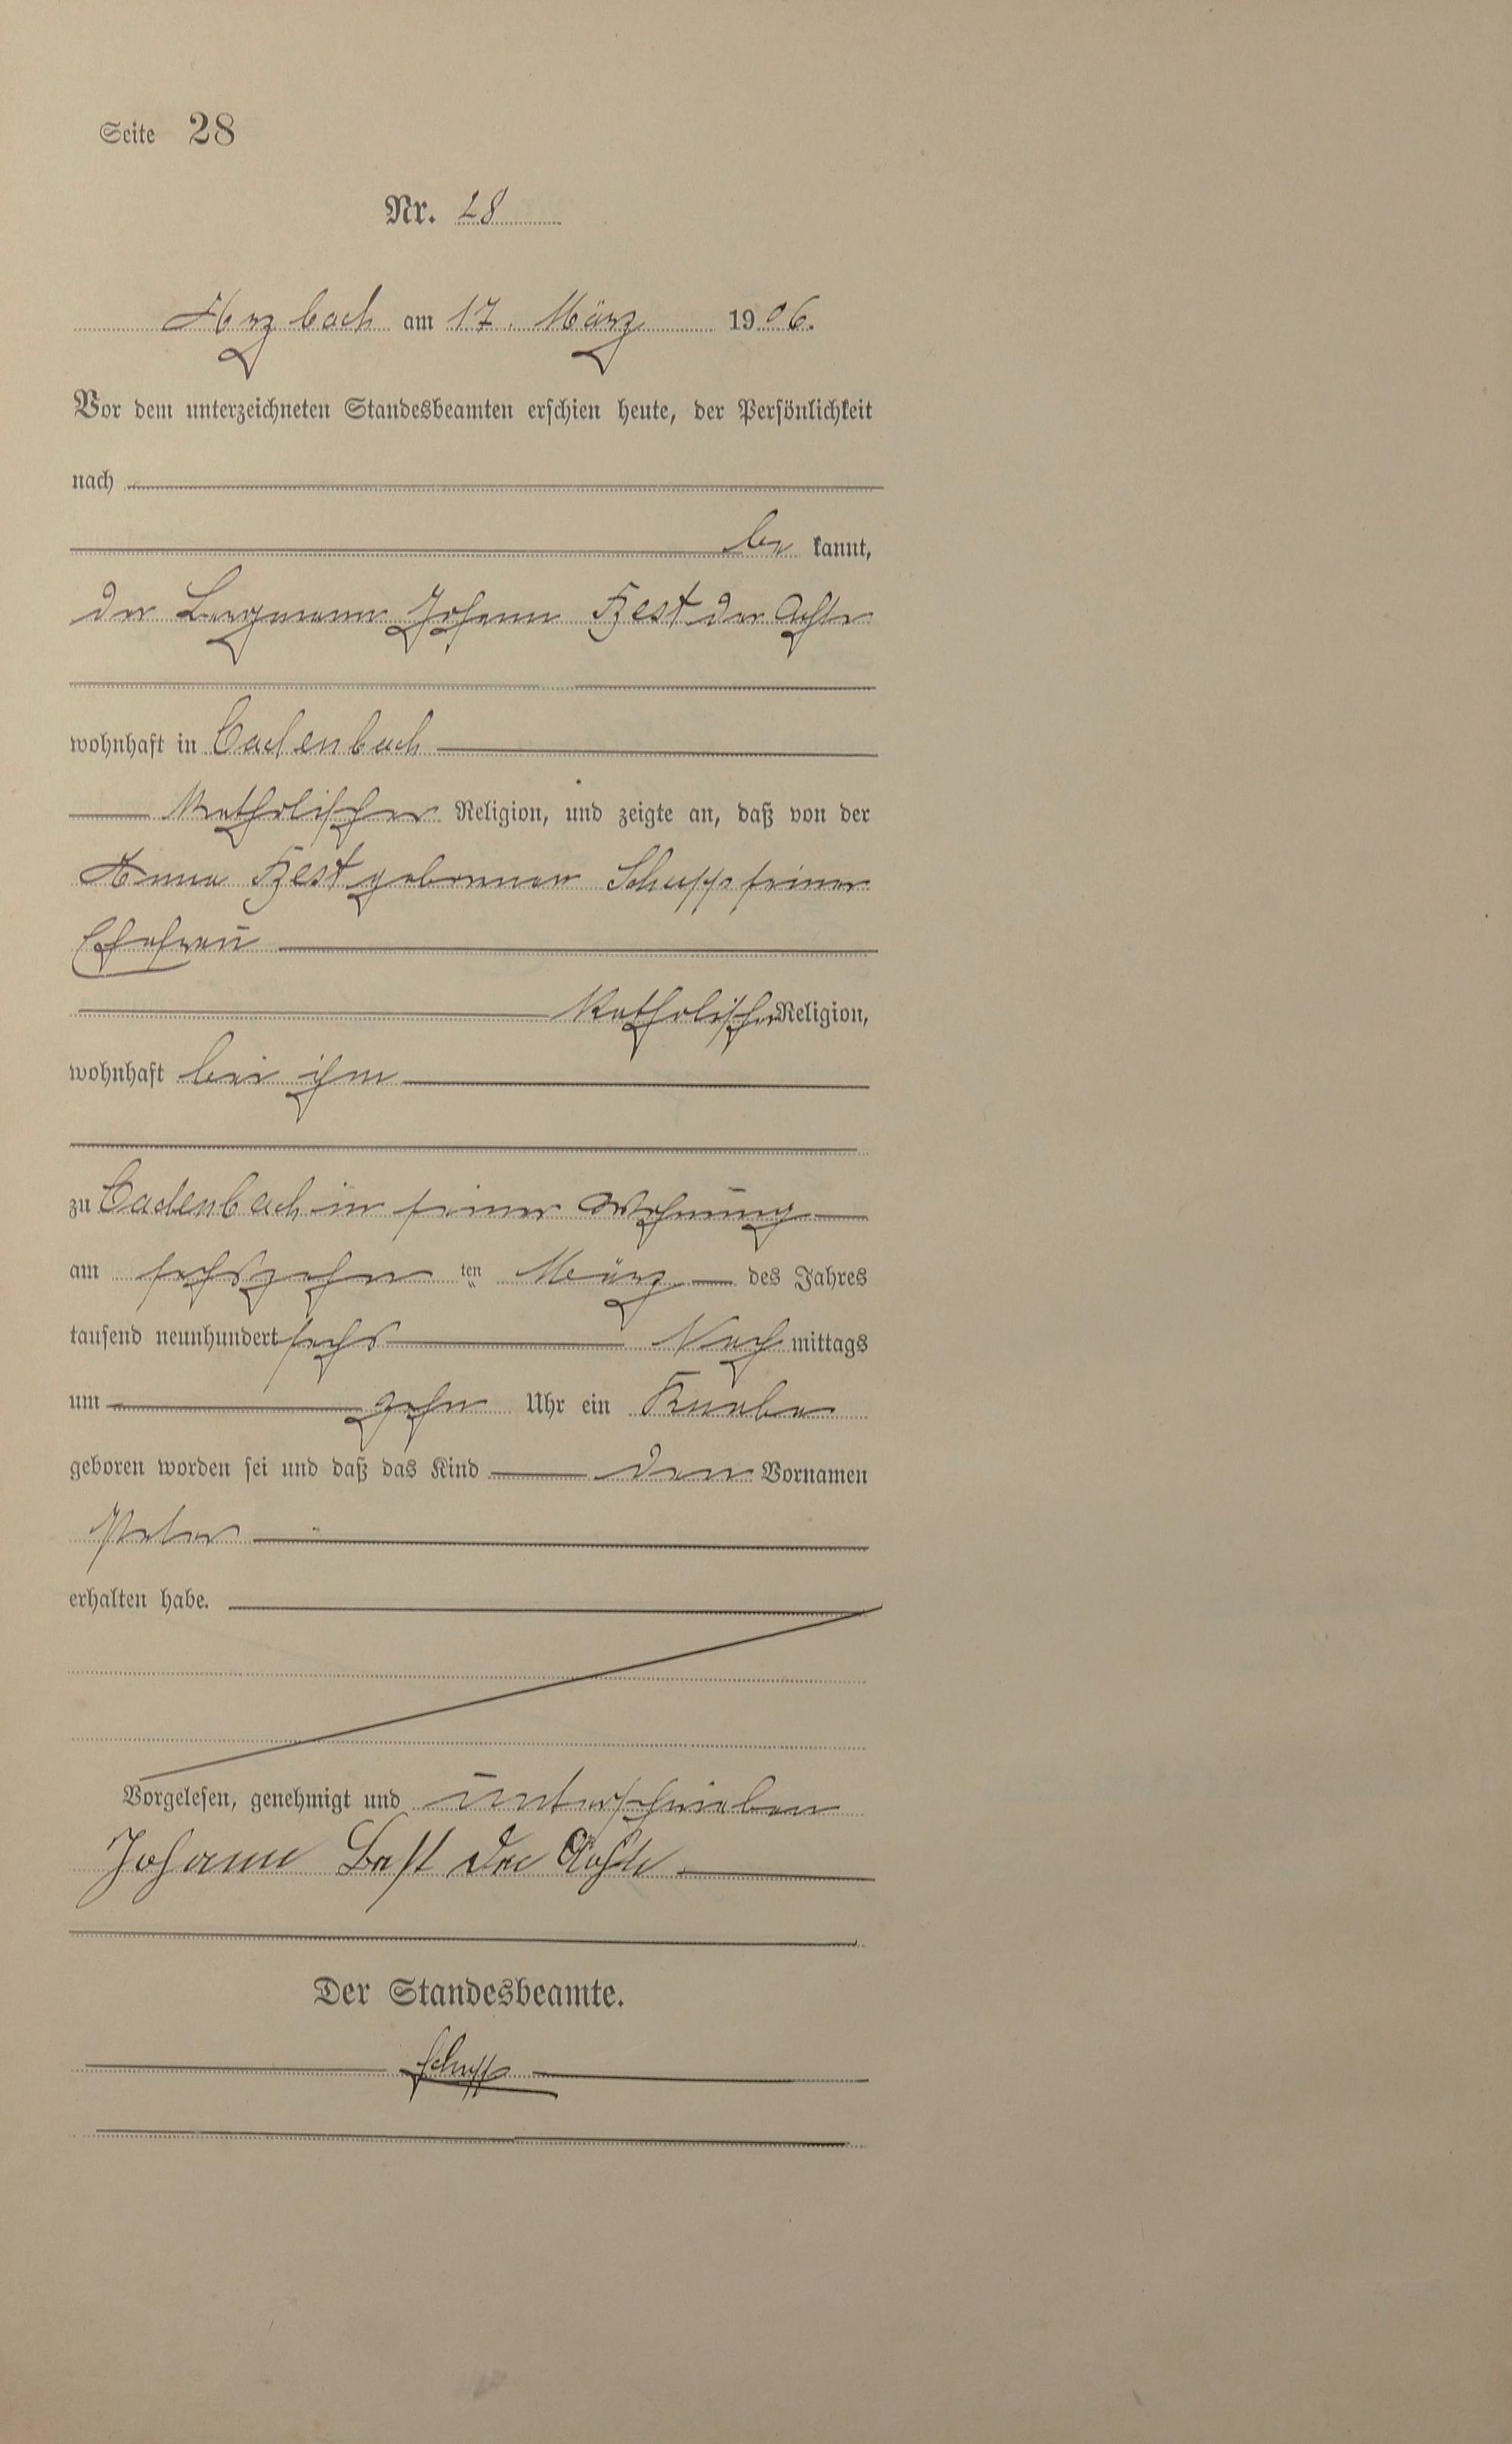 Seite 28
Nr. 28
Arzbach am 17. März 1906.
Vor dem unterzeichneten Standesbeamten erschien heute, der Persönlichkeit
nach
be kannt,
der Bergmann Johann Best der Achte
wohnhaft in Cadenbach
katholischer Religion, und zeigte an, daß von der
Anna Best geborenen Schupp seiner
Ehefrau
katholischer Religion,
wohnhaft bei ihm
zu Cadenbach in seiner Wohnung
am sechszehn ten März des Jahres
tausend neunhundert sechs Nach mittags
um zehn Uhr ein Knabe
geboren worden sei und daß das Kind den Vornamen
Peter
erhalten habe.
Vorgelesen, genehmigt und unterschrieben
Johann Best der Achte
Der Standesbeamte.
Schupp